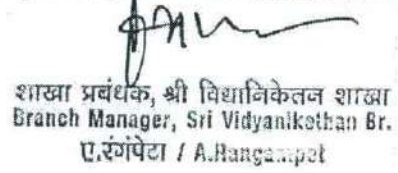 शाखा प्रबंधक, श्री विद्यानिकेतन शाखा
Branch Manager, Sri Vidyanikethan Br.
ए.रंगंपेटा / A.Rangampet